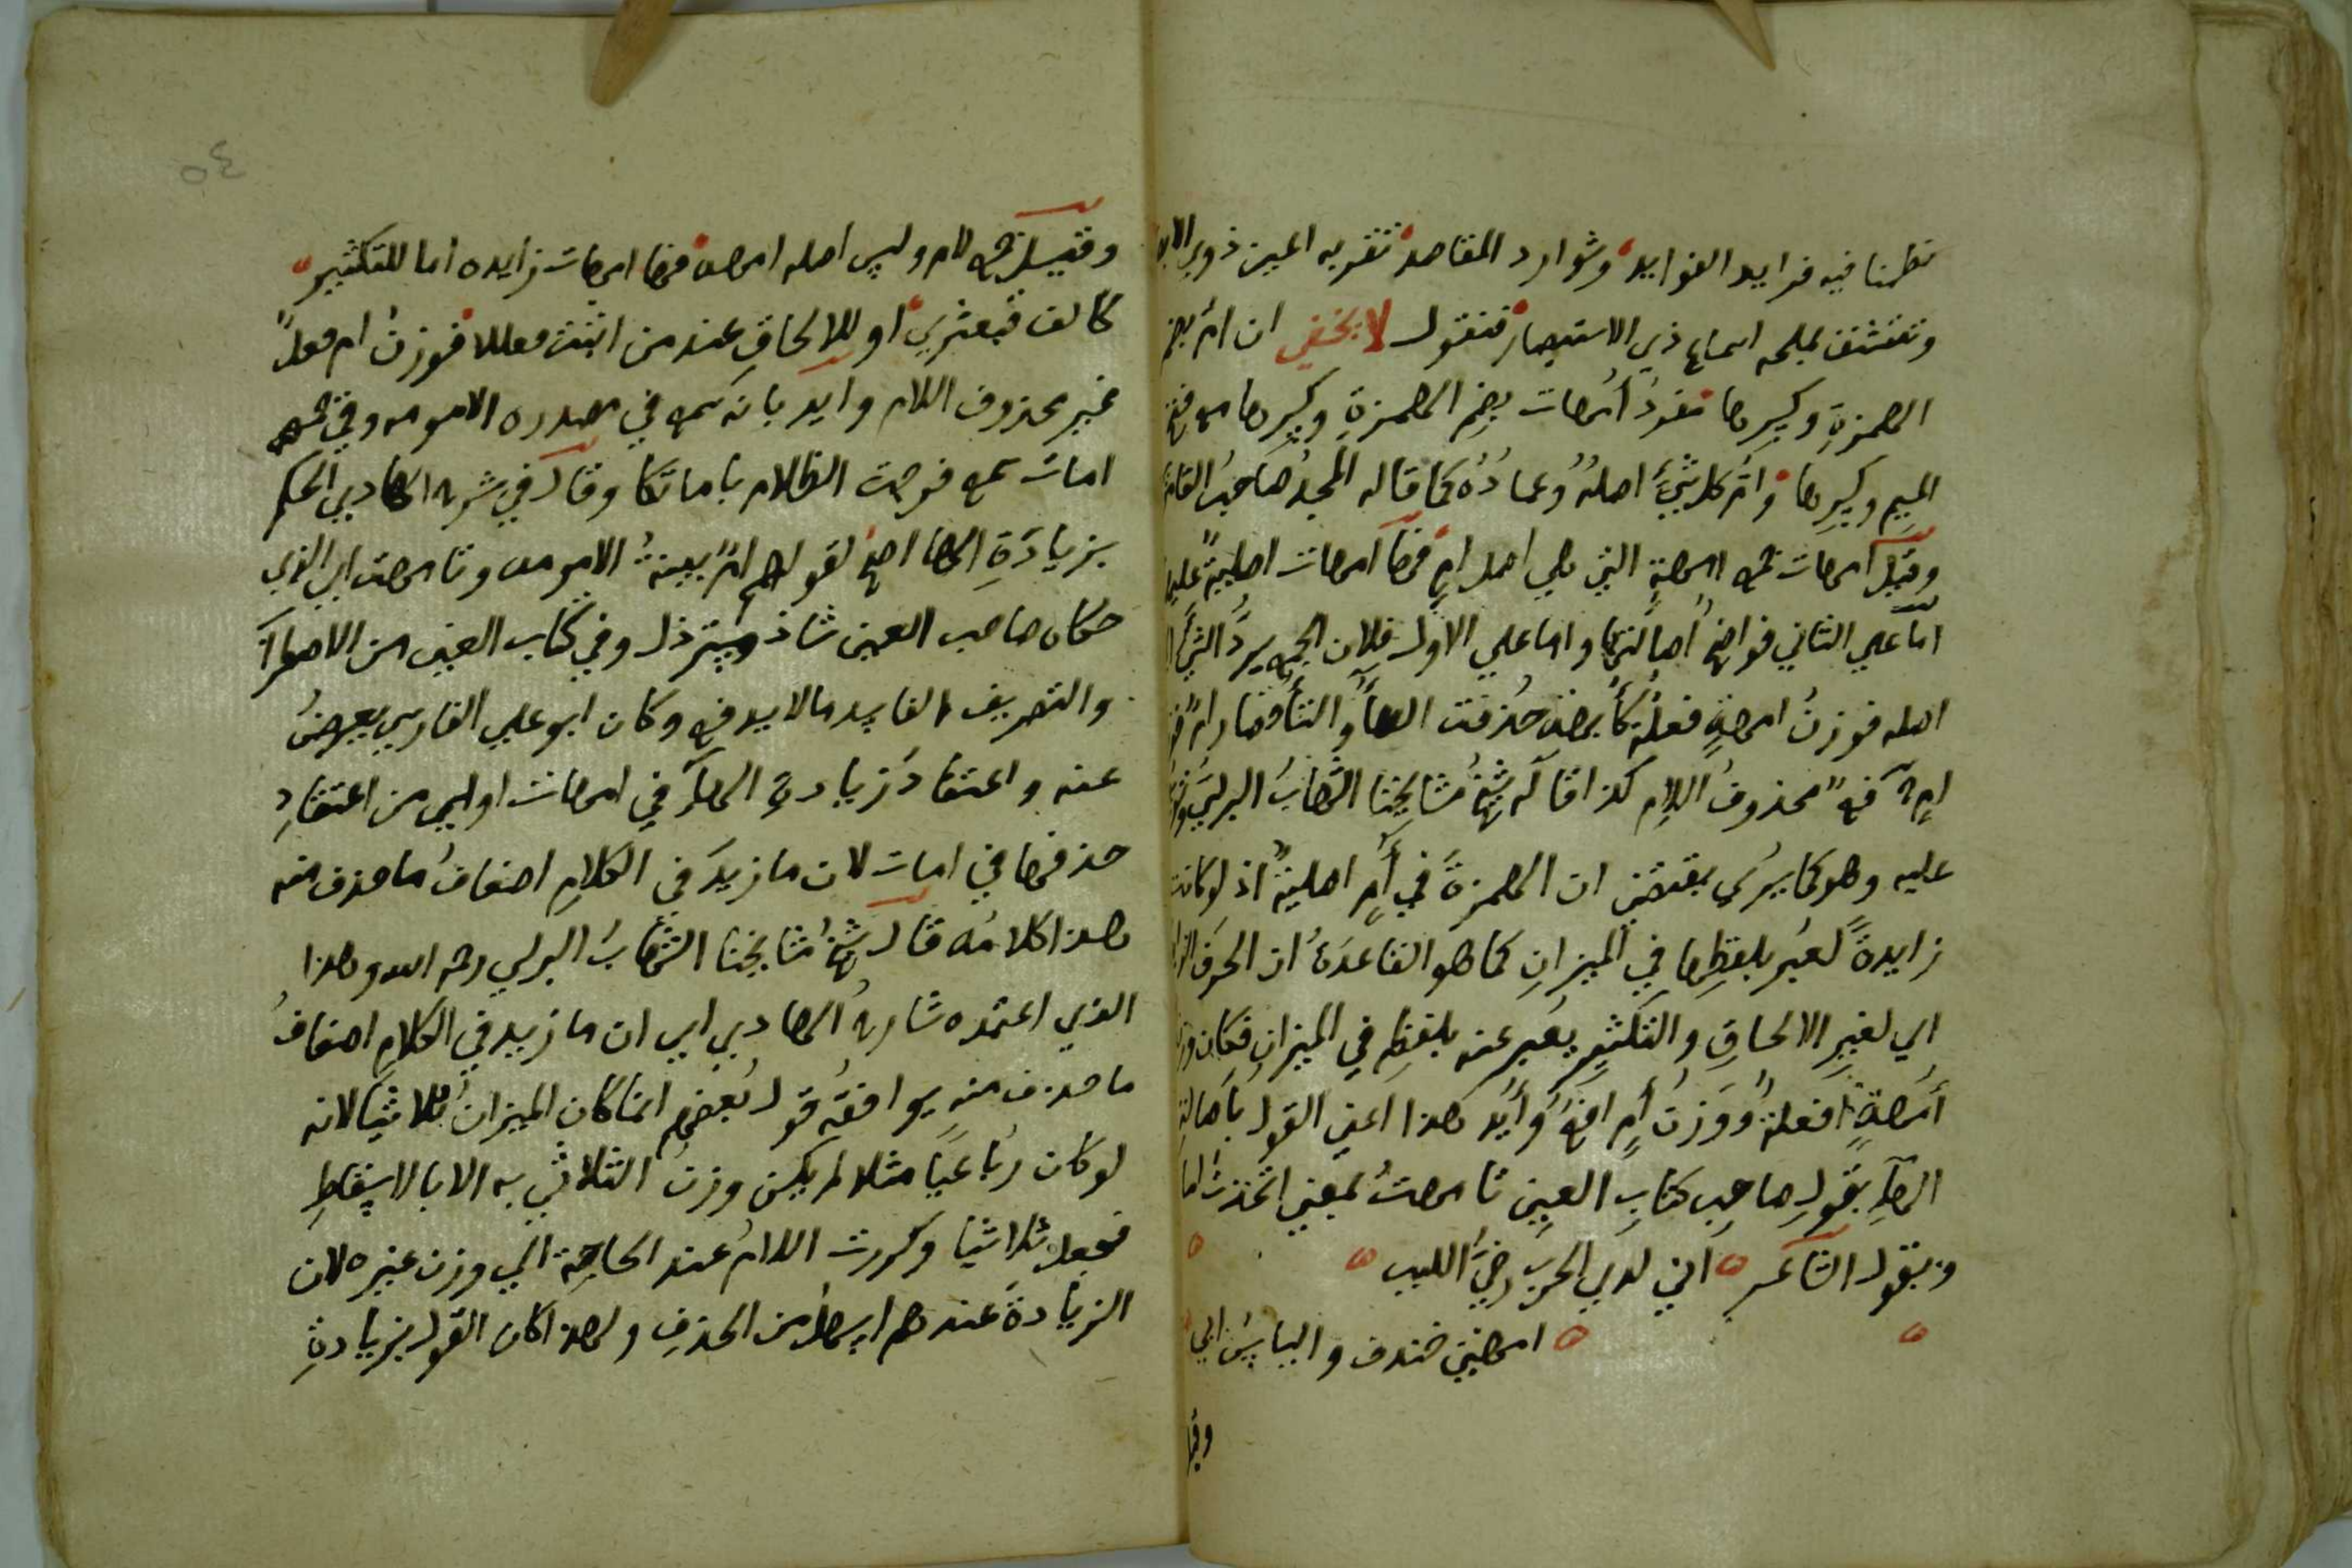 نظمنا فيه فرايد الفوايد وشوارد المقاصد تقر به اعين ذوي
وتتشنف بملحه اسماع ذي الاستبصار فنقول لا يخفى ان ام بضم
الهمزة وكسرها مفرد أمهات بضم الهمزة وكسرها مع فتح
الميم وكسرها وام كل شيء اصله وعماده كما قاله المجد صاحب
وقيل امهات جمع امهة التي هي اصل ام فهاء امهات اصلية عليهما
اما على الثاني فواضح اصالتها واما على الاول فلان الجمع يرد الشيء
اصله فوزن امهة فعلة كأبهة حذفت الهاء والتاء فصار ام
ام فع محذوف اللام كذا قاله شيخ مشايخنا الشهاب البرلسي
عليه وهو كما يرى يقتضي ان الهمزة في أم اصلية اذ لو كانت
زايدة لعبر بلفظها في الميزان كما هو القاعدة ان الحرف
اي لغير الالحاق والتكثير يعبر عنه بلفظه في الميزان فكان وزن
أمهة افعلة ووزن أم افع وأيد هذا اعني القول باصالة
الهاء بقول صاحب كتاب العين تامهت بمعنى اتخذت اما
وبقول الشاعر اني لدى الحرب رخي اللبب
امهتي خندف والياس ابي
وقيل
٥٤
وقيل جمع لام وليس اصله امهة فهاء امهات زايده اما للتكثير
كالف قبعثري او للالحاق عند من اثبت فعللا فوزن ام فعل
غير محذوف اللام وايد بانه سمع في مصدره الامومه وفي جمعه
امات سمع فرجت الظلام باماتكا وقال في شرح الهادي الحكم
بزيادة الهاء اصح لقولهم ام بينة الامومه وتامهت اي الذي
حكاه صاحب العين شاذ مسترذل وفي كتاب العين من الاضطراب
والتصريف الفاسد ما لا يدفع وكان ابو علي الفارسي يعرض
عنه واعتقاد زيادة الهاء في امهات اولى من اعتقاد
حذفها في امات لان ما زيد في الكلام اضعاف ما حذف منه
هذا كلامه قال شيخ مشايخنا الشهاب البرلسي رحمه الله وهذا
الذي اعتمده شارح الهادي اي ان ما زيد في الكلام اضعاف
ما حذف منه يوافقه قول بعضهم انما كان الميزان ثلاثيا لانه
لو كان رباعيا مثلا لم يكن وزن الثلاثي به الا بالاسقاط
فجعل ثلاثيا وكررت اللام عند الحاجة الي وزن غيره لان
الزيادة عندهم اسهل من الحذف ولهذا كان القول بزيادة